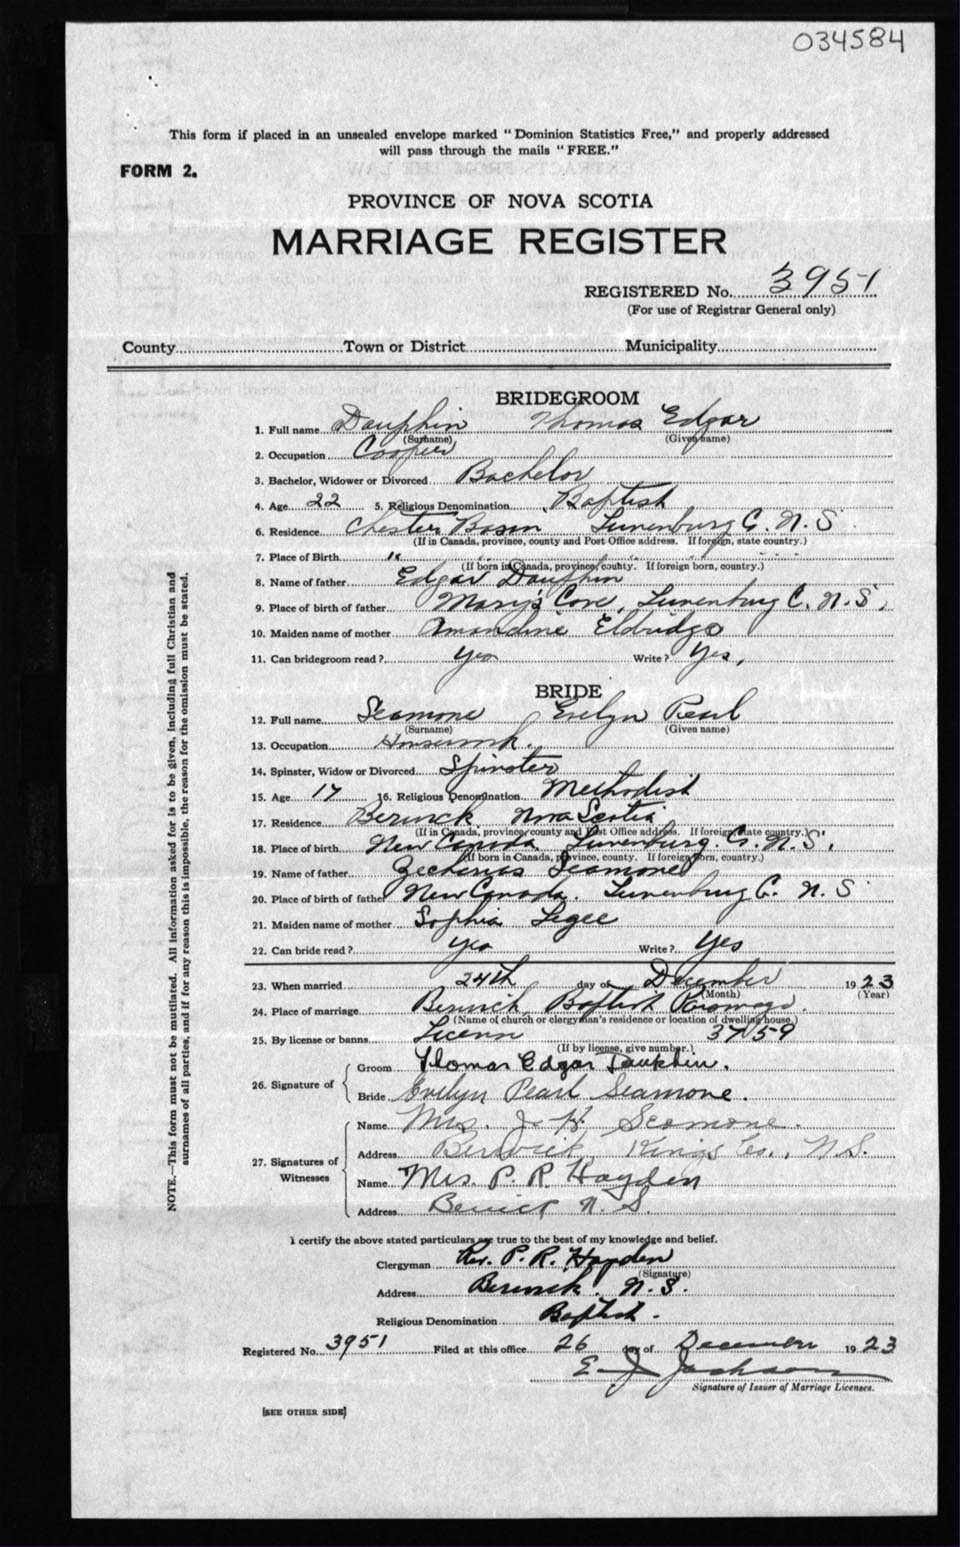 034584
This form if placed in an unsealed envelope marked "Dominion Statistics Free," and properly addressed
will pass through the mails "FREE."
FORM 2.
PROVINCE OF NOVA SCOTIA
MARRIAGE REGISTER
REGISTERED No. 3951
(For use of Registrar General only)
County Town or District Municipality
BRIDEGROOM
1. Full name Dauphin Thomas Edgar
(Surname) (Given name)
2. Occupation Cooper
3. Bachelor, Widower or Divorced Bachelor
4. Age 22 5. Religious Denomination Baptist
6. Residence Chester Basin Lunenburg C. N. S.
(If in Canada, province, county and Post Office address. If foreign, state country.)
7. Place of Birth " " " " "
(If born in Canada, province, county. If foreign born, country.)
8. Name of father Edgar Dauphin
9. Place of birth of father Mary's Cove, Lunenburg C. N. S.
10. Maiden name of mother Amandine Eldridge
11. Can bridegroom read? Yes Write? Yes,
BRIDE
12. Full name Seamone Evelyn Pearl
(Surname) (Given name)
13. Occupation Housework.
14. Spinster, Widow or Divorced Spinster
15. Age 17 16. Religious Denomination Methodist
17. Residence Berwick Nova Scotia
(If in Canada, province, county and Post Office address. If foreign, state country.)
18. Place of birth New Canada Lunenburg. Co. N. S.
(If born in Canada, province, county. If foreign born, country.)
19. Name of father Zecharias Seamone
20. Place of birth of father New Canada. Lunenburg C. N. S
21. Maiden name of mother Sophia Legee
22. Can bride read? Yes Write? Yes
23. When married 24th day of December 1923
(Month) (Year)
24. Place of marriage Berwick Baptist Parsonage.
(Name of church or clergyman's residence or location of dwelling house.)
25. By license or banns License 3759
(If by license, give number.)
26. Signature of
Groom Thomas Edgar Dauphin.
Bride Evelyn Pearl Seamone.
27. Signatures of Witnesses
Name Mrs. J. H. Seamone.
Address Berwick, Kings Co., N.S.
Name Mrs. P. R. Hayden
Address Berwick N. S.
I certify the above stated particulars are true to the best of my knowledge and belief.
Clergyman Rev. P. R. Hayden
(Signature)
Address Berwick. N. S.
Religious Denomination Baptist.
Registered No. 3951 Filed at this office 26 day of December 1923
E J Jackson
Signature of Issuer of Marriage Licenses.
[SEE OTHER SIDE]
NOTE.—This form must not be mutilated. All information asked for is to be given, including full Christian and
surnames of all parties, and if for any reason this is impossible, the reason for the omission must be stated.